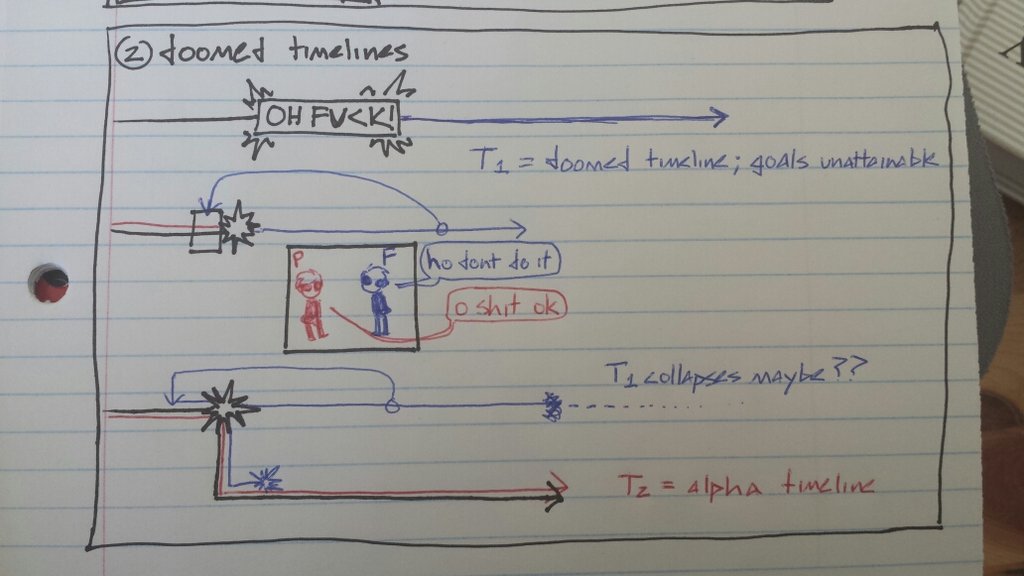 ② doomed timelines
OH FUCK!
T1 = doomed timeline; goals unattainable
P
F
no dont do it
o shit ok
T1 collapses maybe??
T2 = alpha timeline